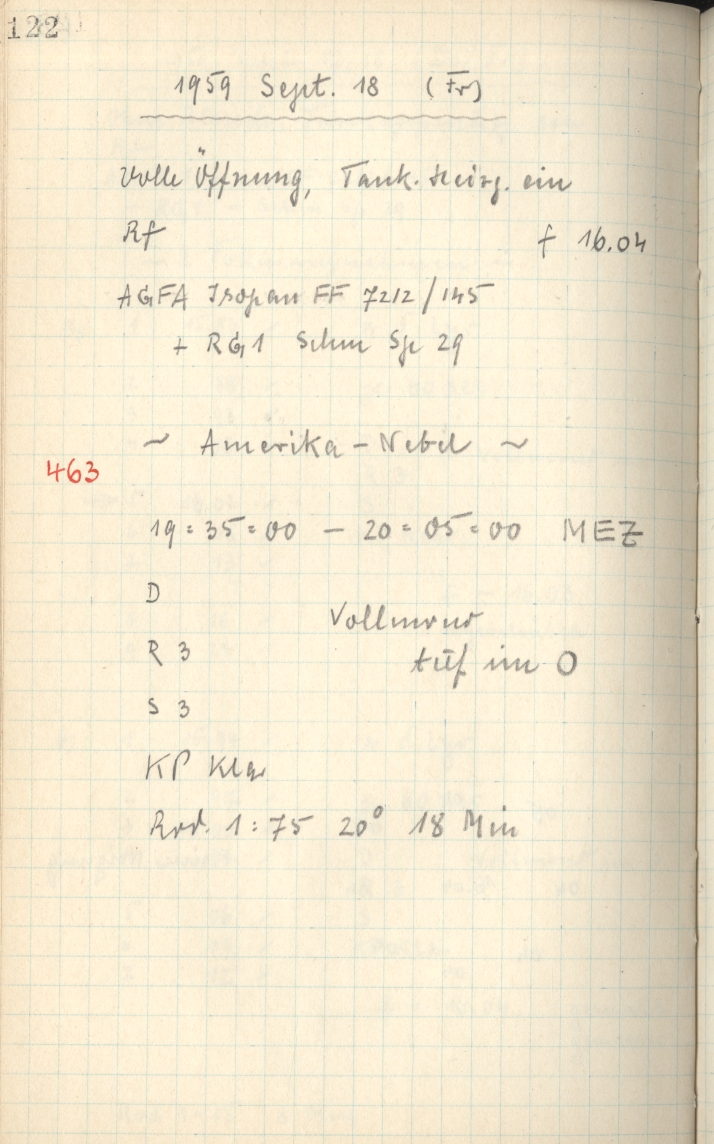 122
1959 Sept. 18 (Fr)
Volle Öffnung, Tauk. Heizg. ein
Rf f 16.04
AGFA Isopan FF 7212/145
+ RG1 Schm Sp 29
~ Amerika-Nebel ~
463
19=35=00 - 20=05=00 MEZ
D
Vollmond
R 3
tief im O
S 3
KP Klar
Rod. 1:75 20° 18 Min